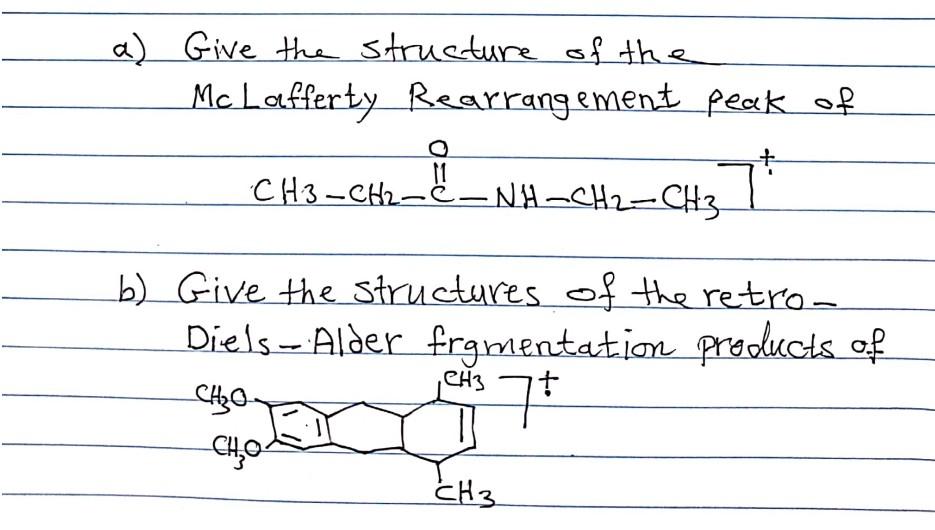 a) Give the structure of the
McLafferty Rearrangement peak of
O
CH3-CH2-C-NH-CH2-CH3 ⁺•
b) Give the structures of the retro-
Diels-Alder frgmentation products of
CH3 ⁺•
CH3O
CH3O
CH3